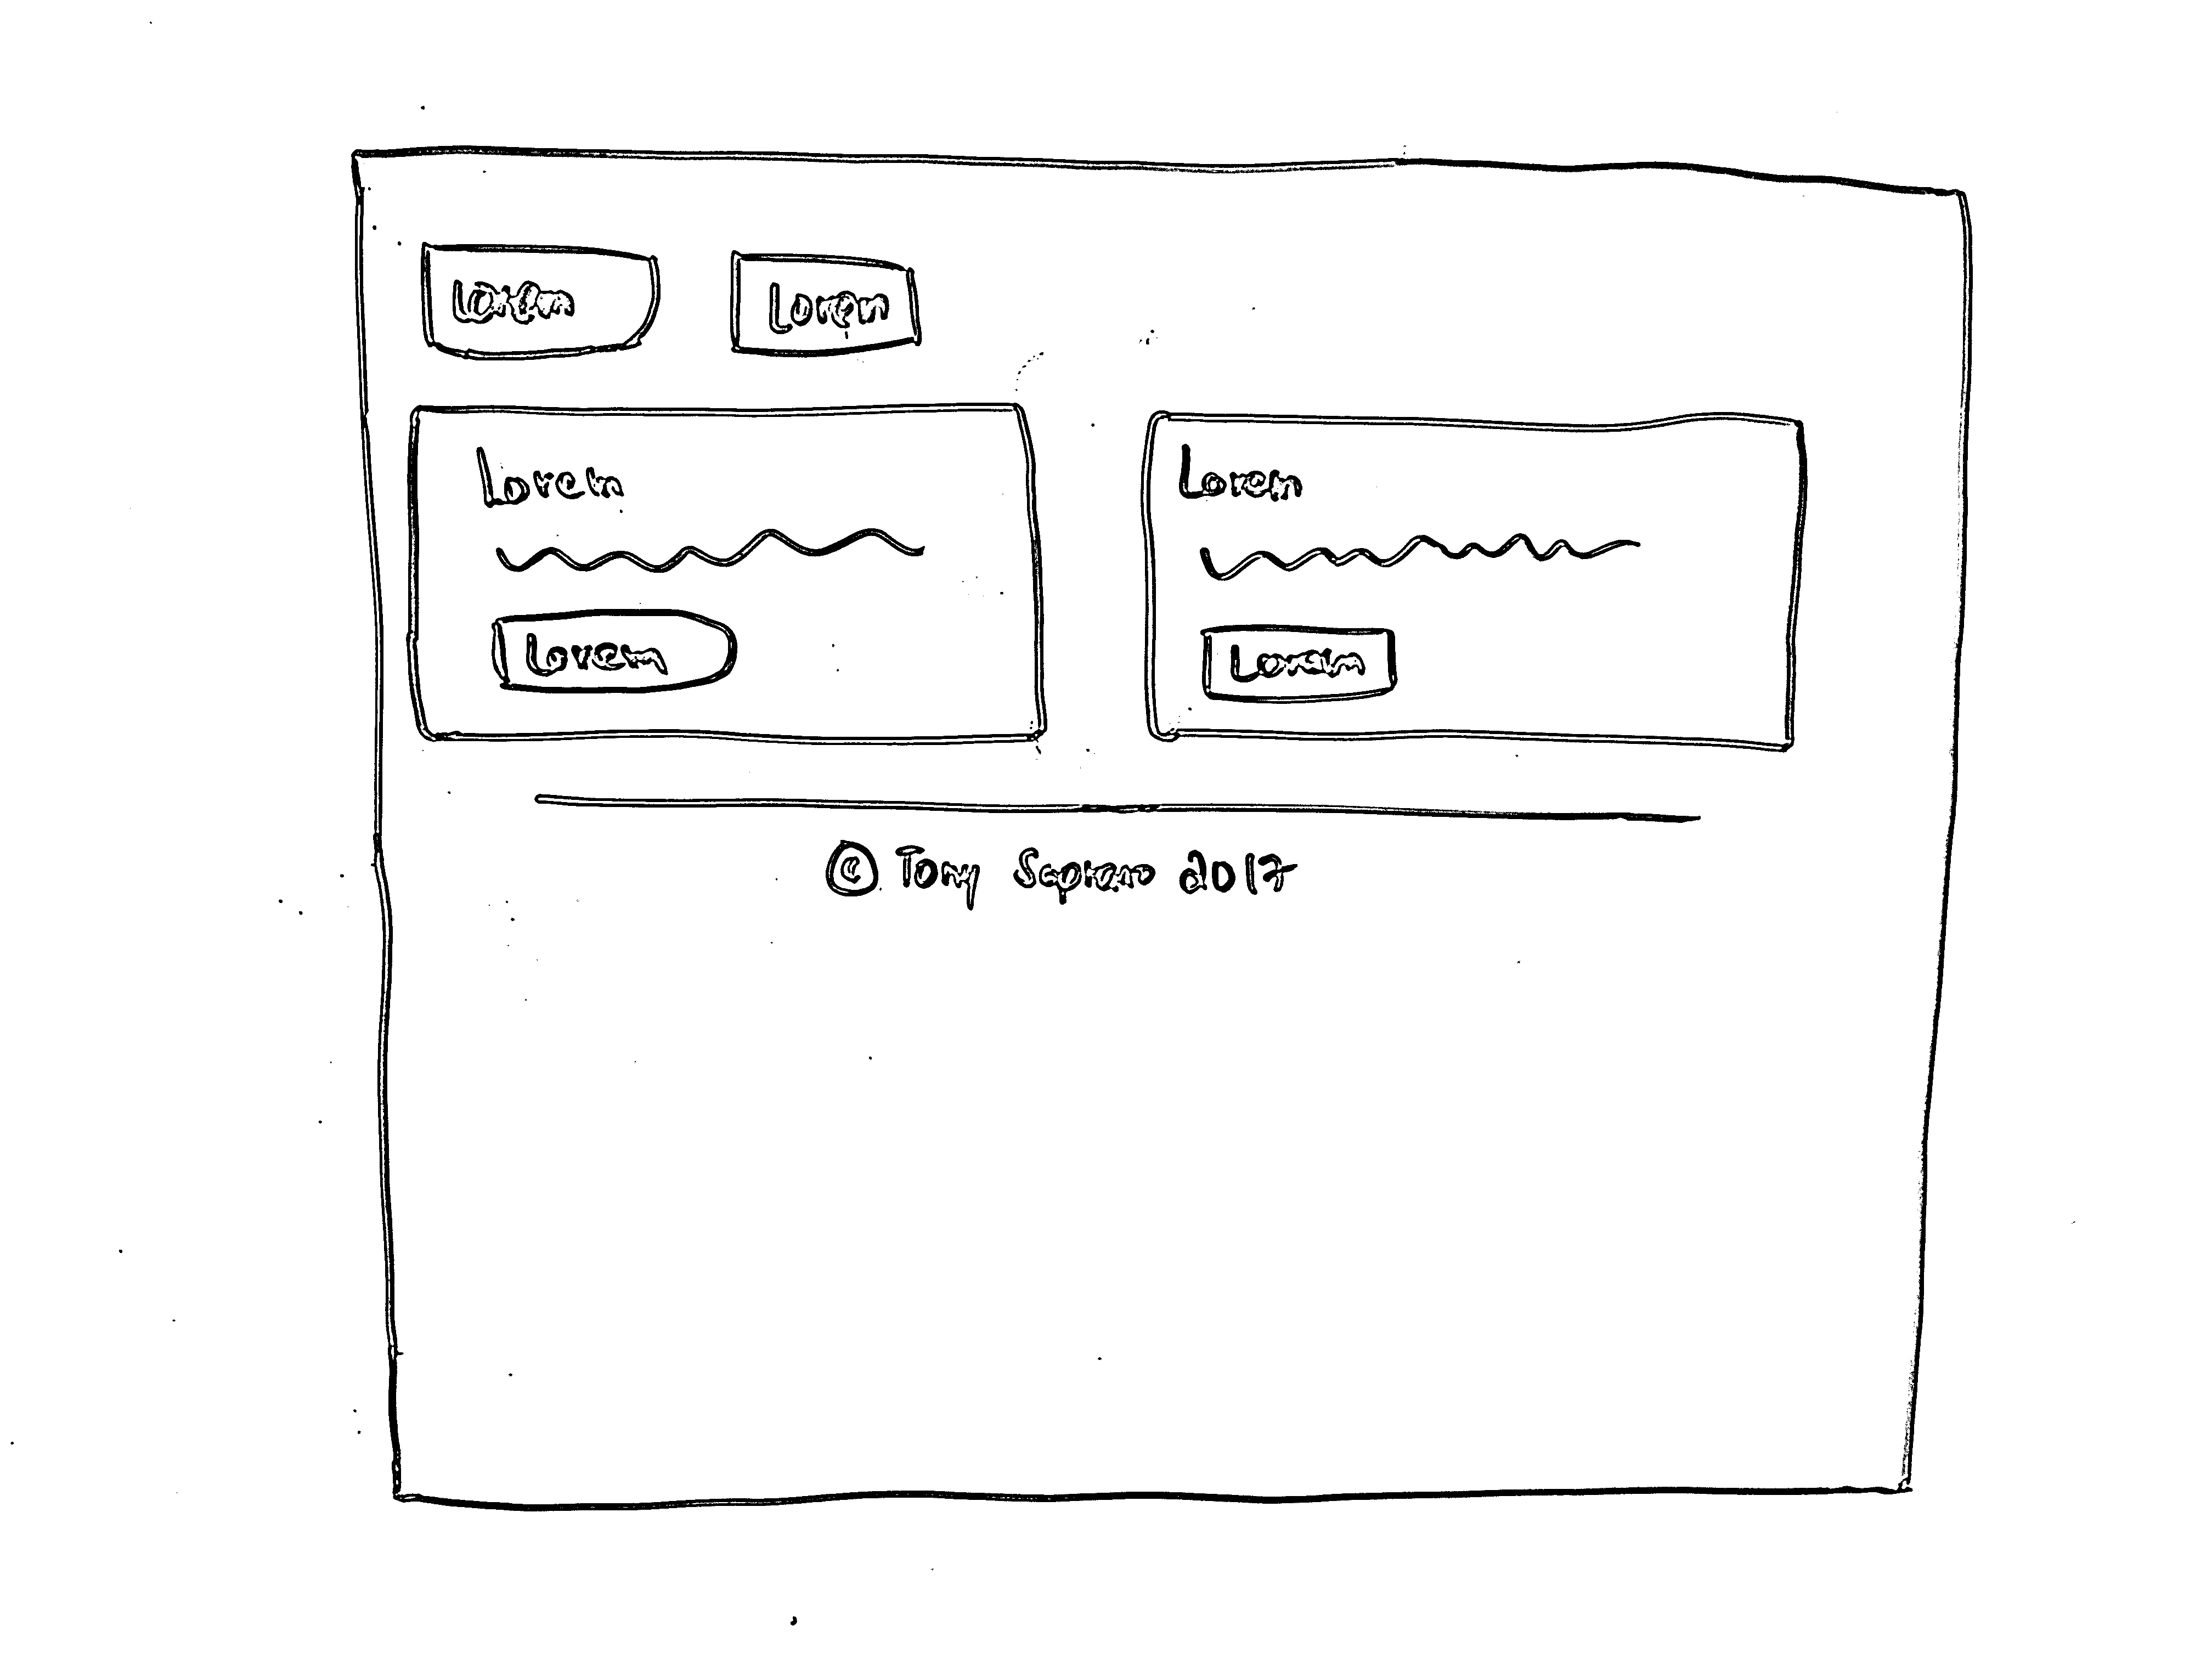 Lorem Lorem
Lorem Lorem
Lorem Lorem
© Tony Soprano 2017